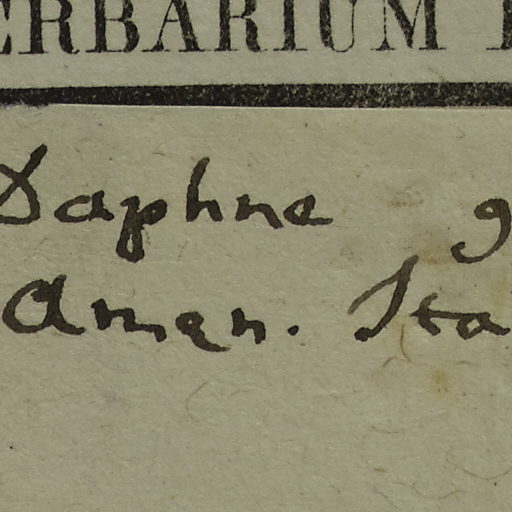 ERBARIUM
Daphne g
Amen. Sta